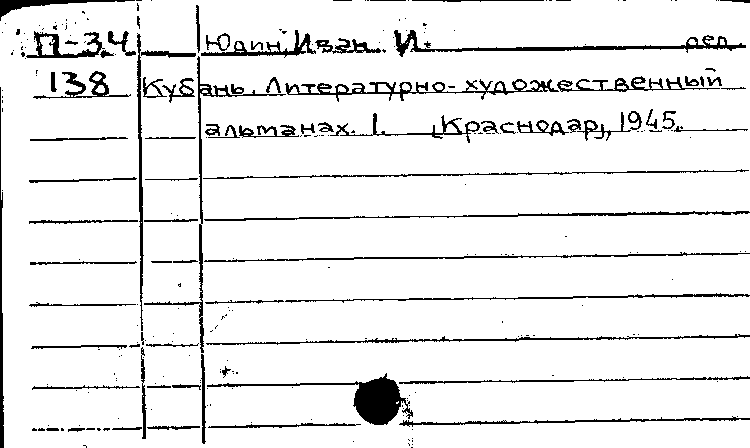 П-34 Юдин, Иван И. ред.
138 Кубань. Литературно-художественный
альманах. 1. [Краснодар], 1945.